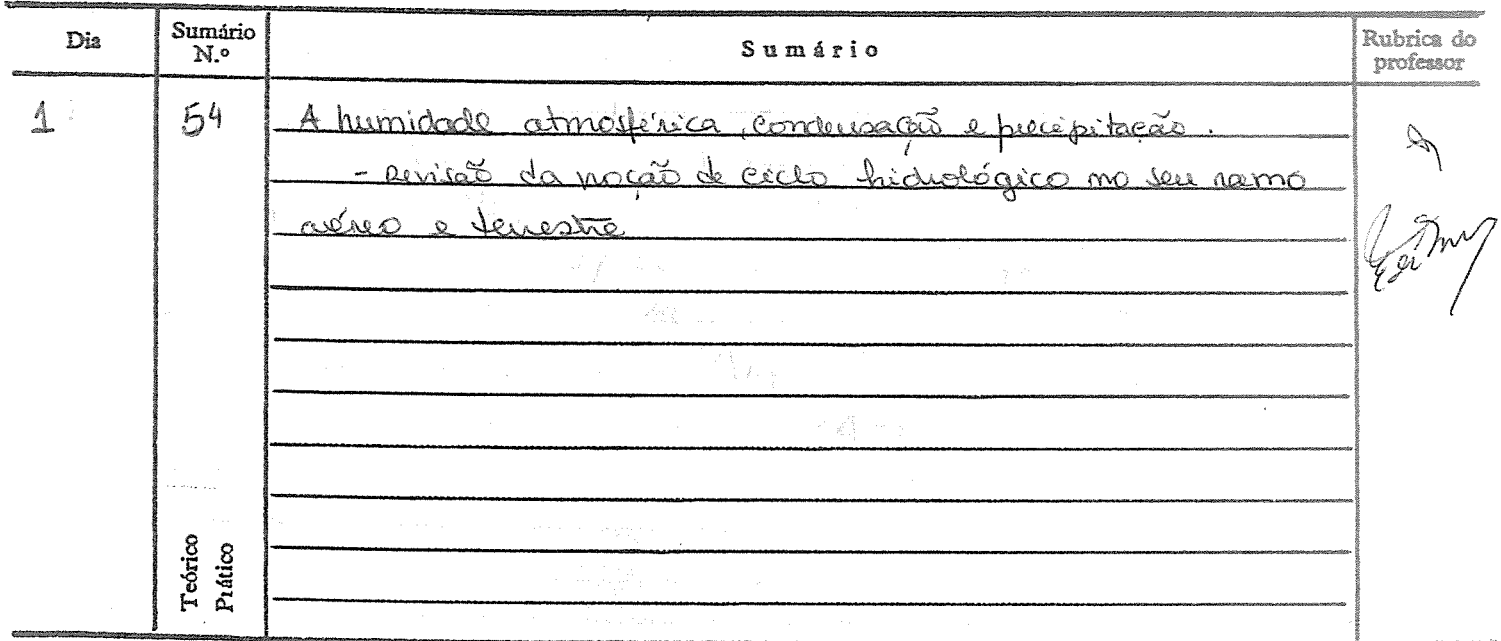 Dia Sumário N.º Sumário Rubrica do professor
1 54 A humidade atmosférica, condensação e precipitação.
- revisão da noção de ciclo hidrológico no seu ramo
aéreo e terrestre
Teórico
Prático